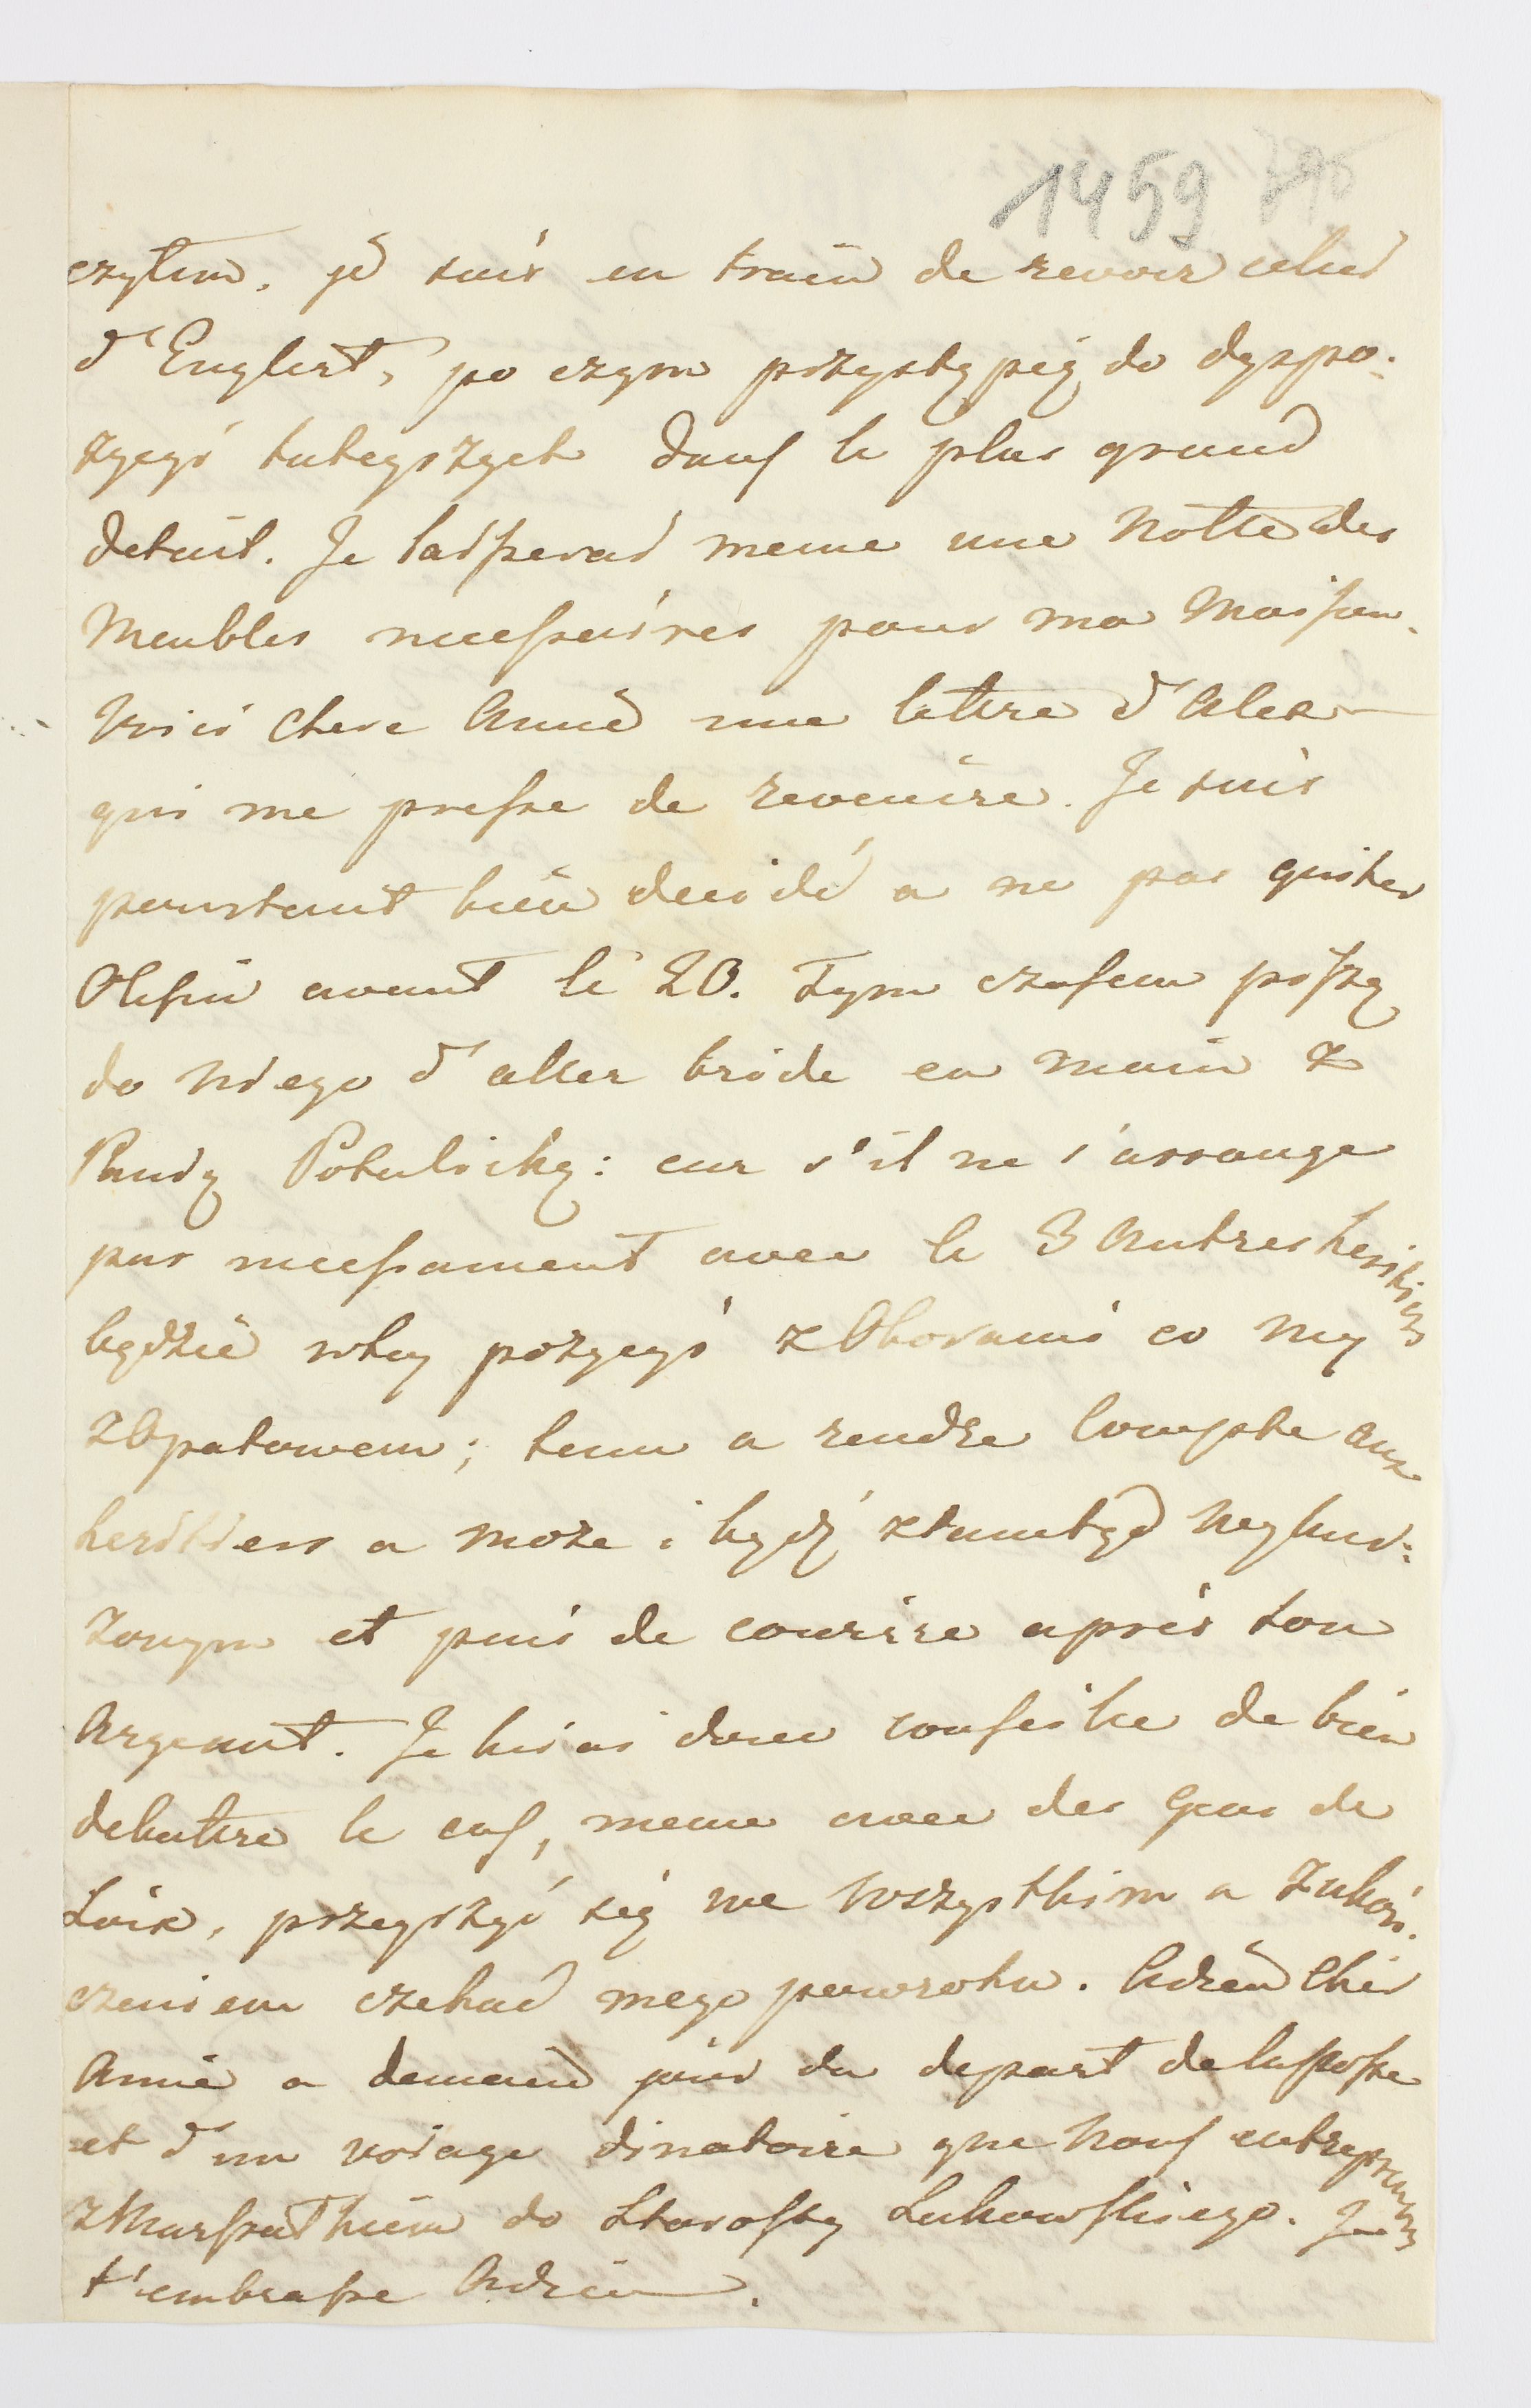 1459
czytim. je suis en train de revoir celui
d'Englert, po czym przystąpię do dyspo-
zycyi tutejszych dans le plus grand
detail. Je laisserai meme une Notte des
Meubles necessaires pour ma Maison.
Voici chere Amie une lettre d'Alex
qui me presse de revenire. Je suis
pourtant bien decidé a ne pas quiter
Olesin avant le 20. Tym czasem piszę
do Niego d'aller bride en main z
Panią Potulicką: car s'il ne s'arrange
pas necessament avec le 3 Autres heritiers
będzie w tey pozycyi z Oborami co my
z Opatowem; tenu a rendre Compte aux
heritiers a może i bydź ztamtąd Wyrud-
zonym et puis de courrire après son
Argeant. Je lui ai donc conseilie de bien
debatre le cas, meme avec des Gens de
Loix, przeyrzyć się we wszystkim a z ukoń-
czeniem czekać mego powrotu. Adieu Cher
Amie a demain jour du depart de la Poste
et d'un voiage dinatoire que Nous entreprenons
z Marszałkiem do Starosty Łukowskiego. Je
t'embrasse Adieu.